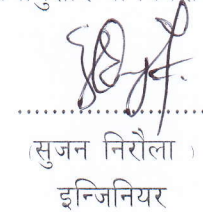 (सुजन निरौला )
इन्जिनियर